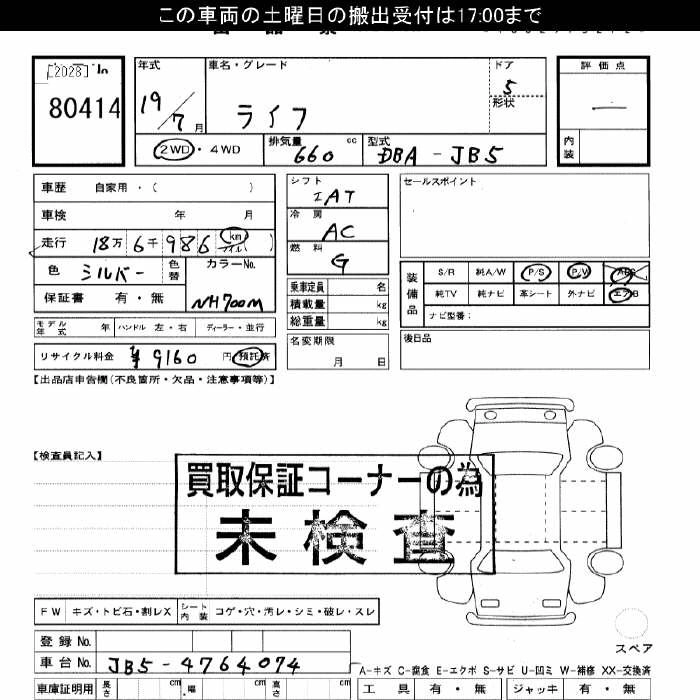 この車両の土曜日の搬出受付は17:00まで
[2028] In
80414
年式
19/7月
車名・グレード
ライフ
ドア
5
形状
評価点
内装
2WD・4WD
排気量
660 cc
型式
DBA-JB5
車歴 自家用・( )
車検 年 月
走行 18万6千986 km マイル
色 シルバー 色替
カラーNo.
NH700M
保証書 有・無
モデル年式 年 ハンドル 左・右 ディーラー・並行
リサイクル料金 ¥9160 円 預託済
シフト
IAT
冷房
AC
燃料
G
乗車定員 名
積載量 kg
総重量 kg
名変期限
月 日
セールスポイント
装備品
S/R 純A/W P/S P/W ABS
純TV 純ナビ 革シート 外ナビ エアB
ナビ型番:
後日品
【出品店申告欄(不良箇所・欠品・注意事項等)】
【検査員記入】
買取保証コーナーの為
未検査
FW キズ・トビ石・割レX シート内装 コゲ・穴・汚レ・シミ・破レ・スレ
登録No.
車台No. JB5-4764074
車庫証明用 長さ cm 幅 cm 高さ cm
スペア
A-キズ C-腐食 E-エクボ S-サビ U-凹ミ W-補修 XX-交換済
工具 有・無 ジャッキ 有・無